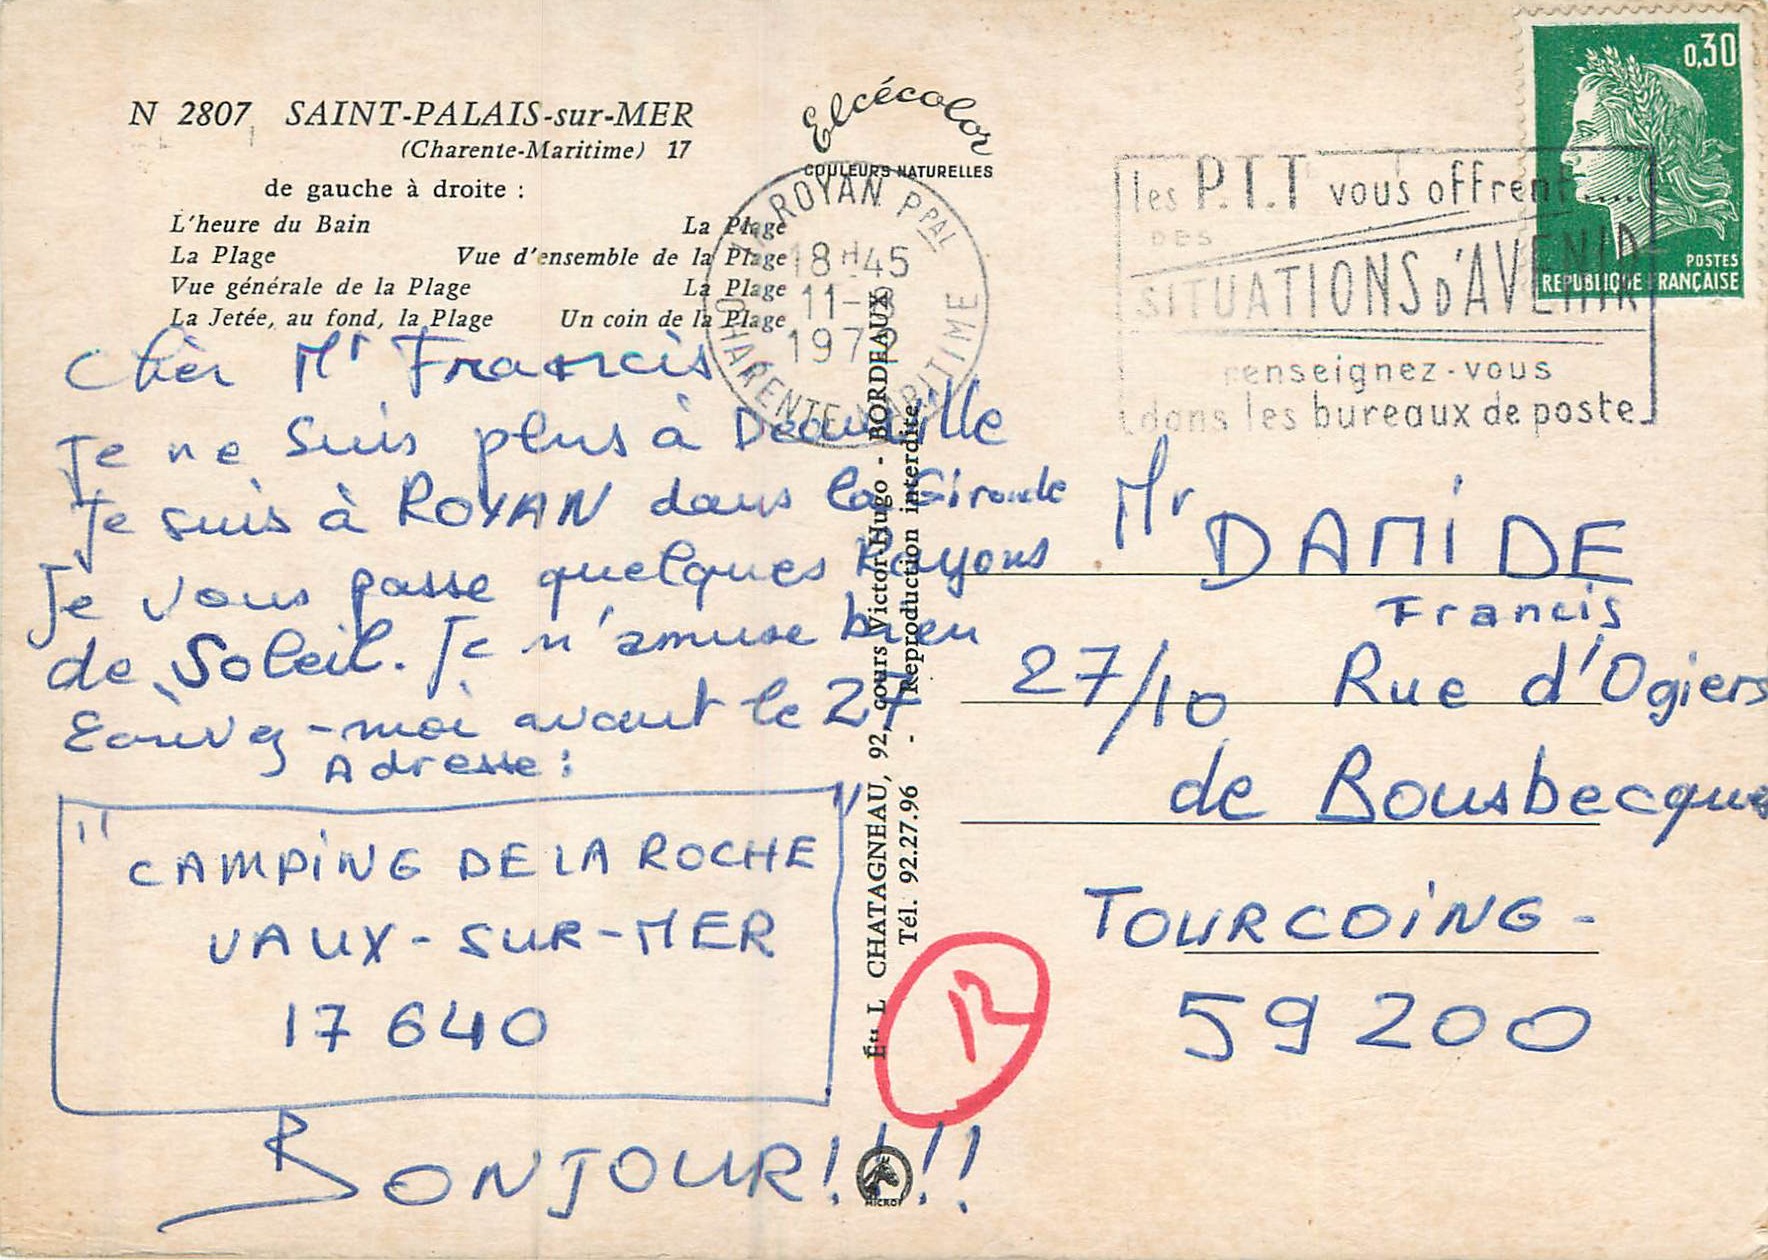 N 2807 SAINT-PALAIS-sur-MER
(Charente-Maritime) 17
de gauche à droite :
L'heure du Bain La Plage
La Plage Vue d'ensemble de la Plage
Vue générale de la Plage La Plage
La Jetée, au fond, la Plage Un coin de la Plage
Elcécolor
COULEURS NATURELLES
ROYAN PPAL
18H45
11-8
1972
CHARENTE MARITIME
les P.T.T vous offrent....
DES
SITUATIONS D'AVENIR
renseignez-vous
dans les bureaux de poste
0,30
POSTES
REPUBLIQUE FRANÇAISE
Chèr Mr Francis
Je ne suis plus à Deauville
Je suis à ROYAN dans la Gironde
Je vous passe quelques Rayons
de Soleil. Je m'amuse bien
Ecrivez-moi avant le 27
Adresse :
"CAMPING DE LA ROCHE"
VAUX-SUR-MER
17 640
BONJOUR!!!!
L CHATAGNEAU, 92, cours Victor-Hugo - BORDEAUX
Tél. 92.27.96 - Reproduction interdite
Mr DAMIDE
Francis
27/10 Rue d'Ogiers
de Bousbecque
TOURCOING -
59 200